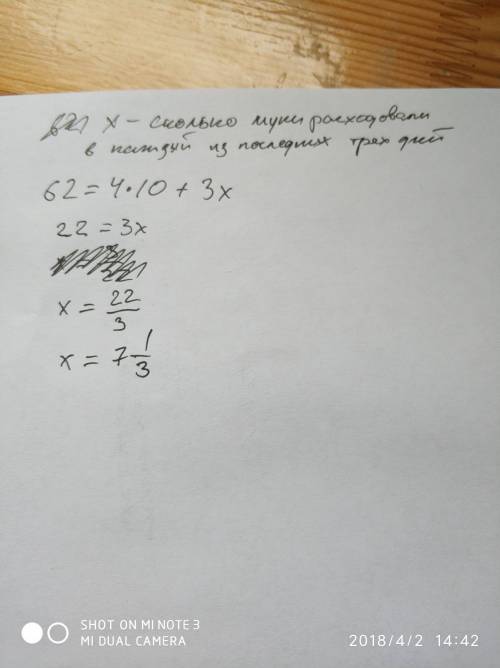 x - сколько муки расходовали
в каждый из последних трех дней
62 = 4·10 + 3x
22 = 3x
x = 22/3
x = 7 1/3
SHOT ON MI NOTE 3
MI DUAL CAMERA
2018/4/2 14:42